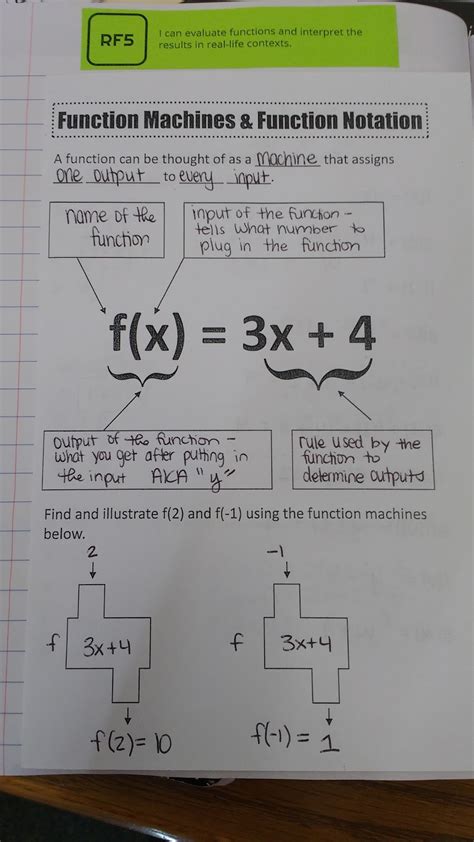 RF5
I can evaluate functions and interpret the
results in real-life contexts.
Function Machines & Function Notation
A function can be thought of as a machine that assigns
one output to every input.
name of the
function
input of the function -
tells what number to
plug in the function
f(x) = 3x + 4
output of the function -
what you get after putting in
the input AKA "y"
rule used by the
function to
determine outputs
Find and illustrate f(2) and f(-1) using the function machines
below.
2
-1
f
3x+4
f
3x+4
f(2)= 10
f(-1) = 1